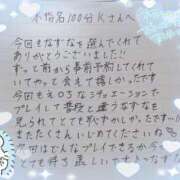 本指名100分Kさんへ
今回もなすなを選んでくれて
ありがとうございました!!
ずっと前から事前予約してく
れていてやっと会えて嬉しかったです
今回もえろえろなシチュエーション
プレイして普段と違うなすなを
見られてとても恥ずかしかったです…♡
またたくさんいじめてくださいね
次回はどんなプレイできるか今
とても待ち遠しいです